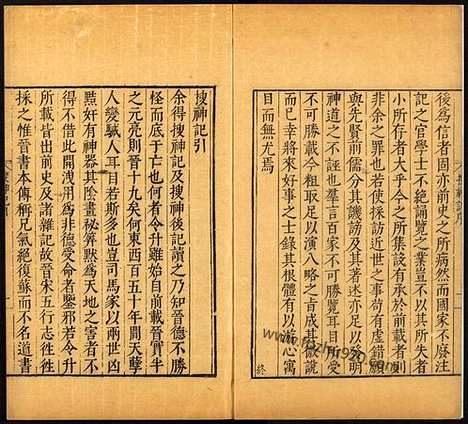 後為信者固亦前史之所病然而國家不廢注
記之官學士不絕誦覽之業豈不以其所失者
小所存者大乎今之所集設有承於前載者則
非余之罪也若使採訪近世之事苟有虛錯願
與先賢前儒分其譏謗及其著述亦足以發明
神道之不誣也羣言百家不可勝覽耳目所受
不可勝載今粗取足以演八略之旨成其微說
而已幸將來好事之士錄其根體有以游心寓
目而無尤焉
終
搜神記引
余得搜神記及搜神後記讀之乃知晉德不勝
怪而底于亡也何者令升雖始自前載晉實半
之元亮則晉十九矣何東西百五十年間天孽
人變駴人耳目若斯多也豈司馬家以兩世凶
黠奸有神器其陰畫秘筭默為天地之害者不
得不借此開洩用為非德受命者鑒邪若令升
所載皆出前史及諸雜記故晉宋五行志往往
採之惟晉書本傳稱兄氣絕復蘇而不名道書
www.fozhu920.com